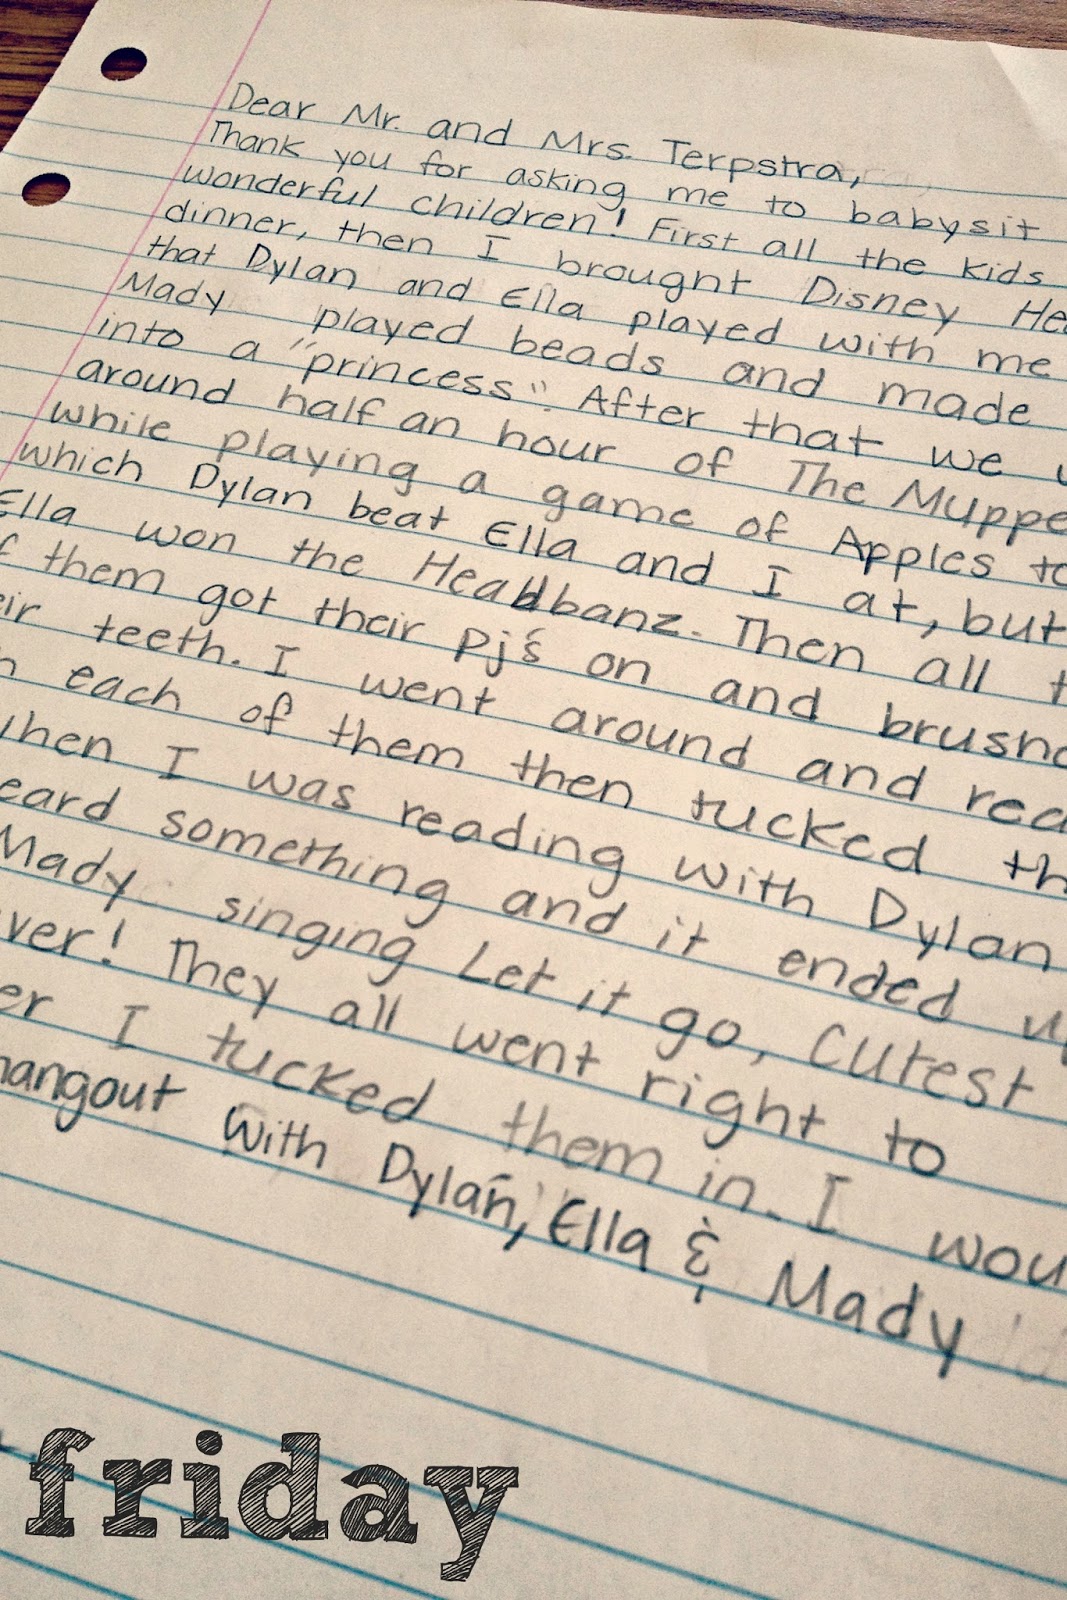 Dear Mr. and Mrs. Terpstra,
Thank you for asking me to babysit
wonderful children! First all the kids
dinner, then I brought Disney He
that Dylan and Ella played with me
Mady played beads and made
into a "princess". After that we
around half an hour of The Muppe
while playing a game of Apples to
which Dylan beat Ella and I at, but
Ella won the Headbanz. Then all t
f them got their pj's on and brush
eir teeth. I went around and rea
n each of them then tucked th
when I was reading with Dylan
eard something and it ended up
Mady singing Let it go, cutest
ver! They all went right to
er I tucked them in. I wou
hangout with Dylan, Ella & Mady
friday